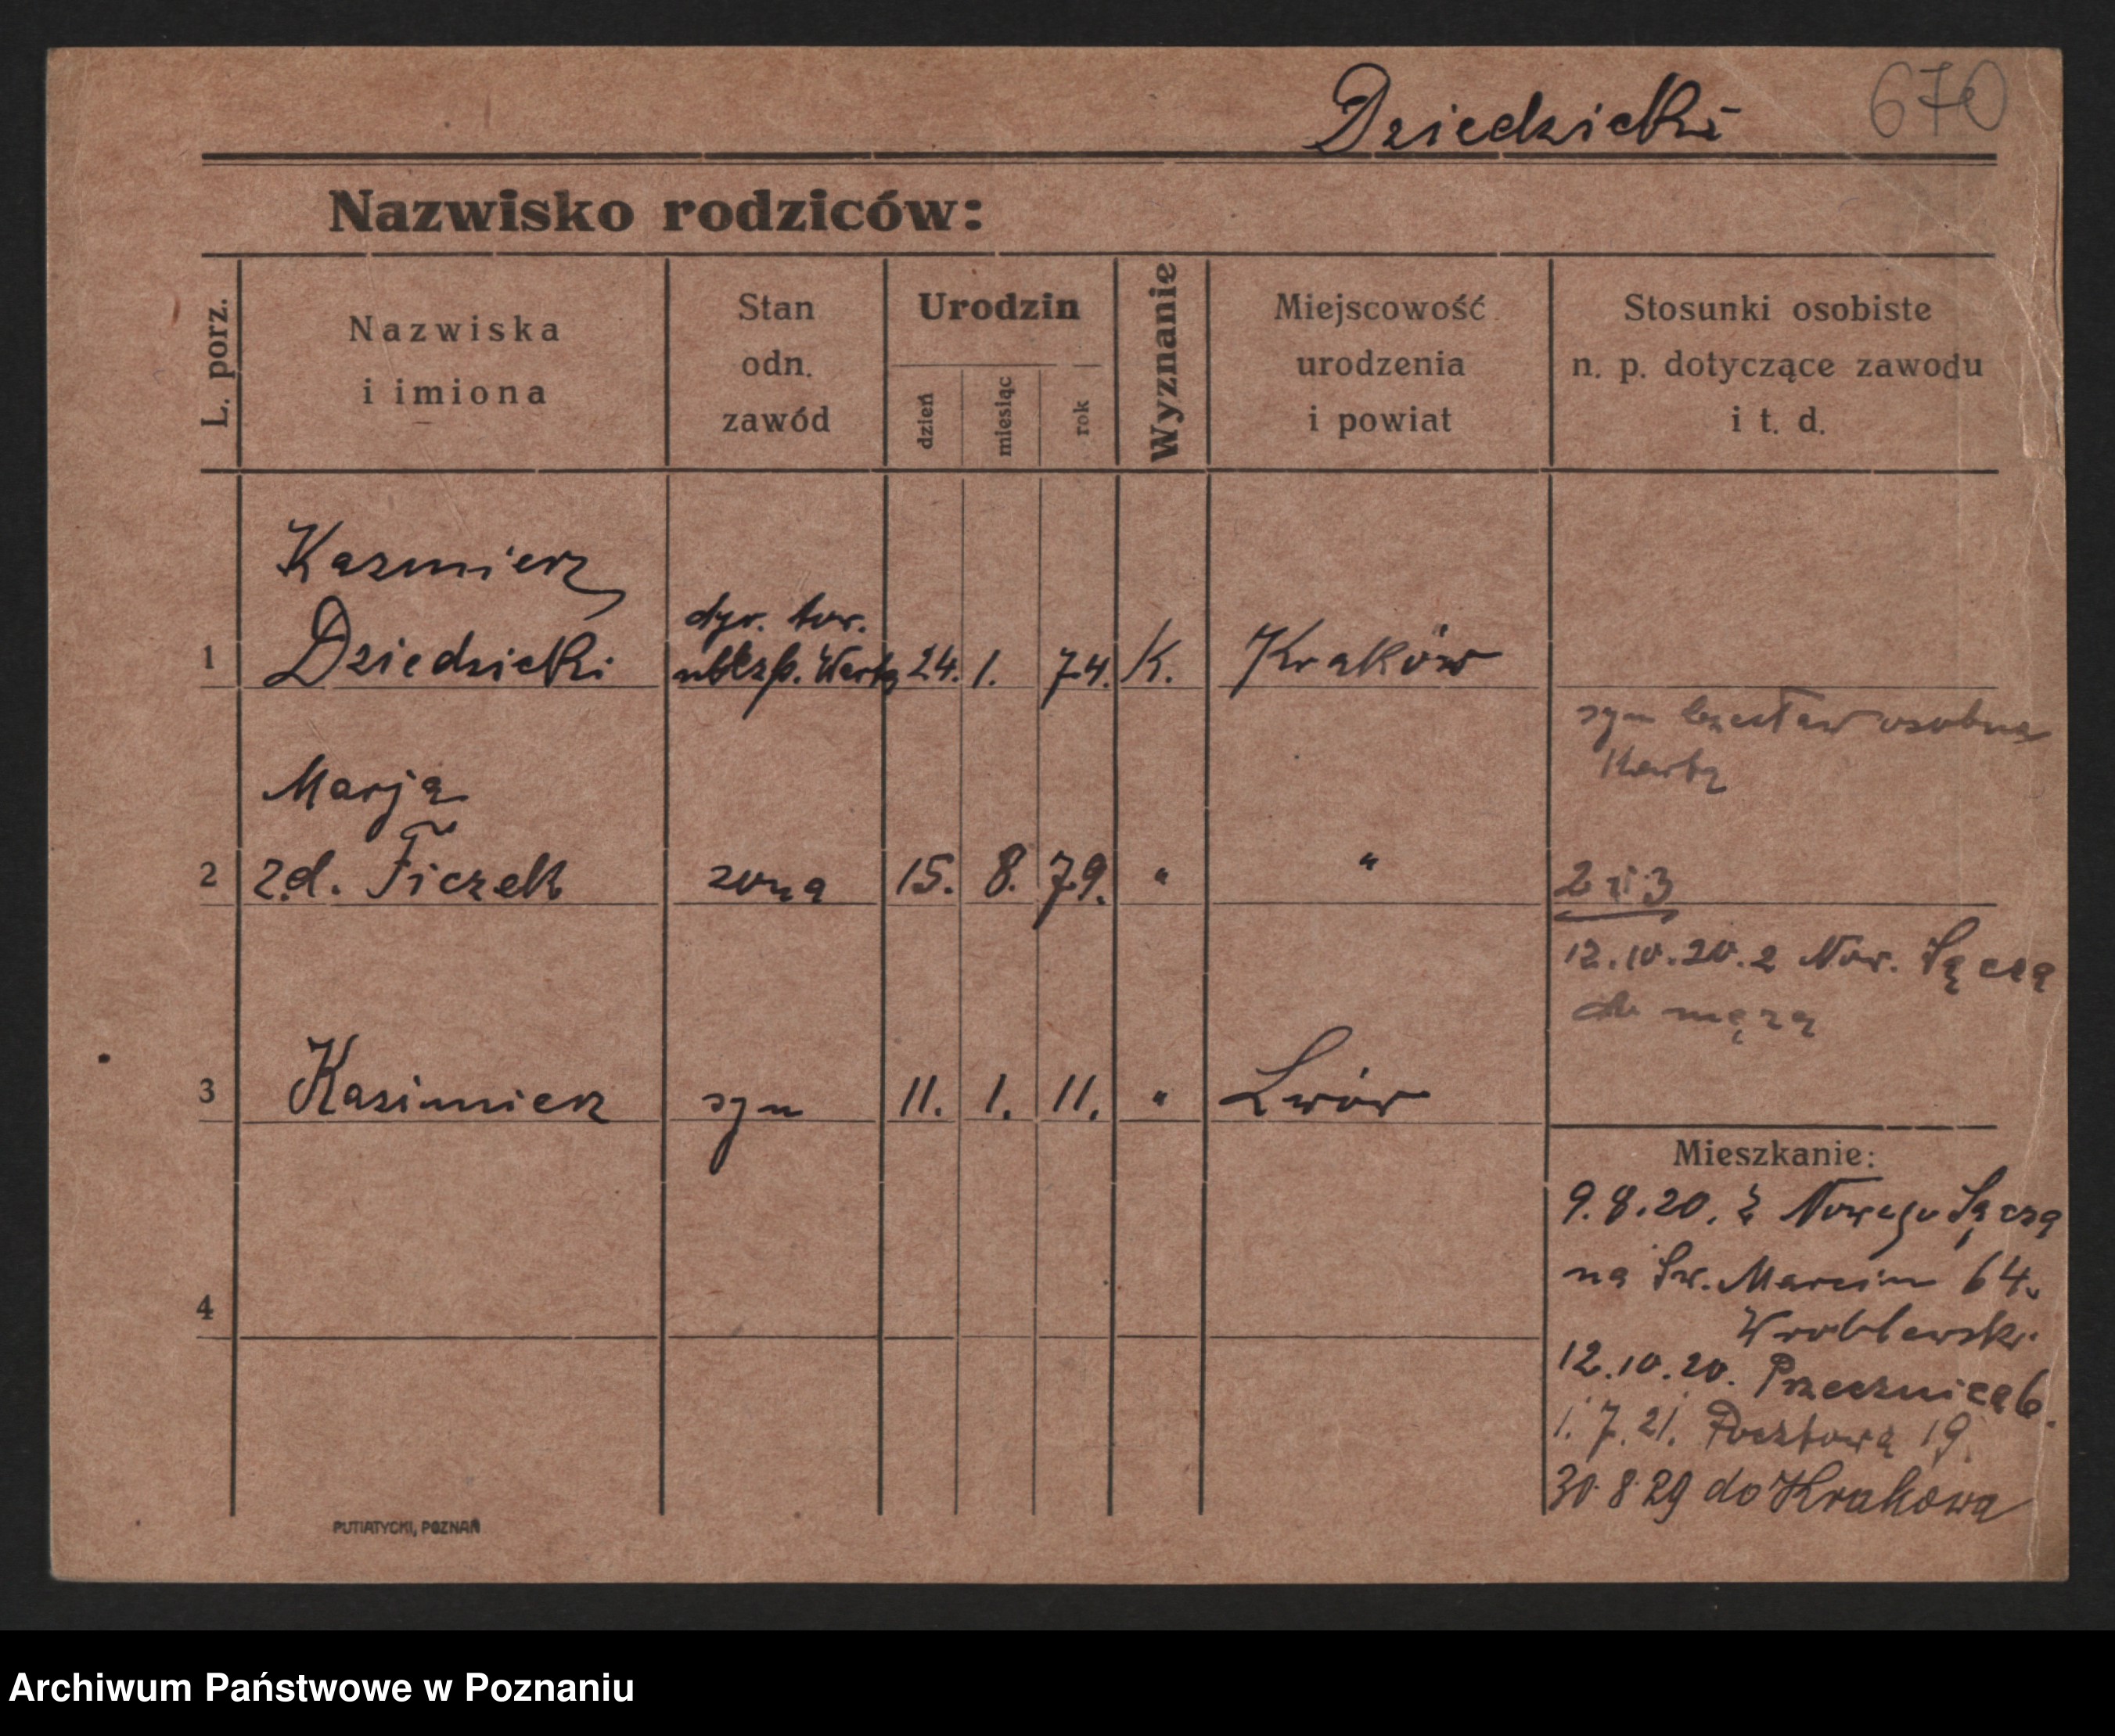 Dziedzicki 670
Nazwisko rodziców:
L. porz.
Nazwiska
i imiona
Stan
odn.
zawód
Urodzin
dzień
miesiąc
rok
Wyznanie
Miejscowość
urodzenia
i powiat
Stosunki osobiste
n. p. dotyczące zawodu
i t. d.
Kazmierz
dyr. tow.
1 Dziedzicki ubezp. Warta 24. 1. 74. K. Kraków
syn Czesław osobna
Karta
Marja
2 zd. Ficzek zona 15. 8. 79. " " 2 i 3
12.10.20. z Now. Sącza
do męza
3 Kazimierz syn 11. 1. 11. " Lwów
Mieszkanie:
9.8.20. z Nowego Sącza
na Św. Marcin 64.
4
Wroblewski
12.10.20. Przecznica 6.
1.7.21. Pocztowa 19.
30.8.29 do Krakowa
PUTIATYCKI, POZNAŃ
Archiwum Państwowe w Poznaniu